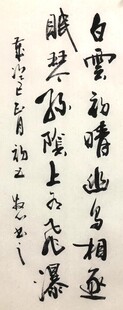 白雲初晴幽鳥相逐
眠琴綠陰上有飛瀑
正月初五 書之